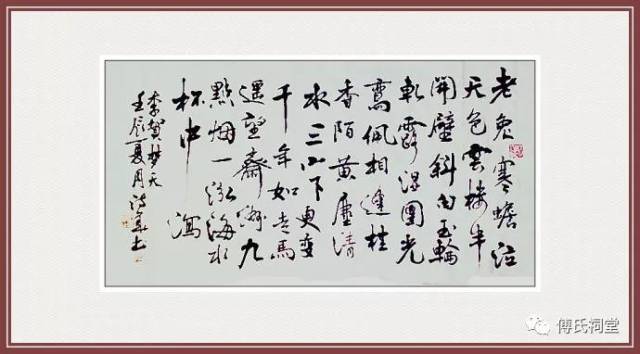 老兔寒蟾泣
天色雲樓半
開壁斜白玉輪
軋露湿團光
鸾佩相逢桂
香陌黄塵清
水三山下更变
千年如走馬
遥望齋州九
點烟一泓海水
杯中瀉
李賀梦天
壬辰夏月
傅氏祠堂